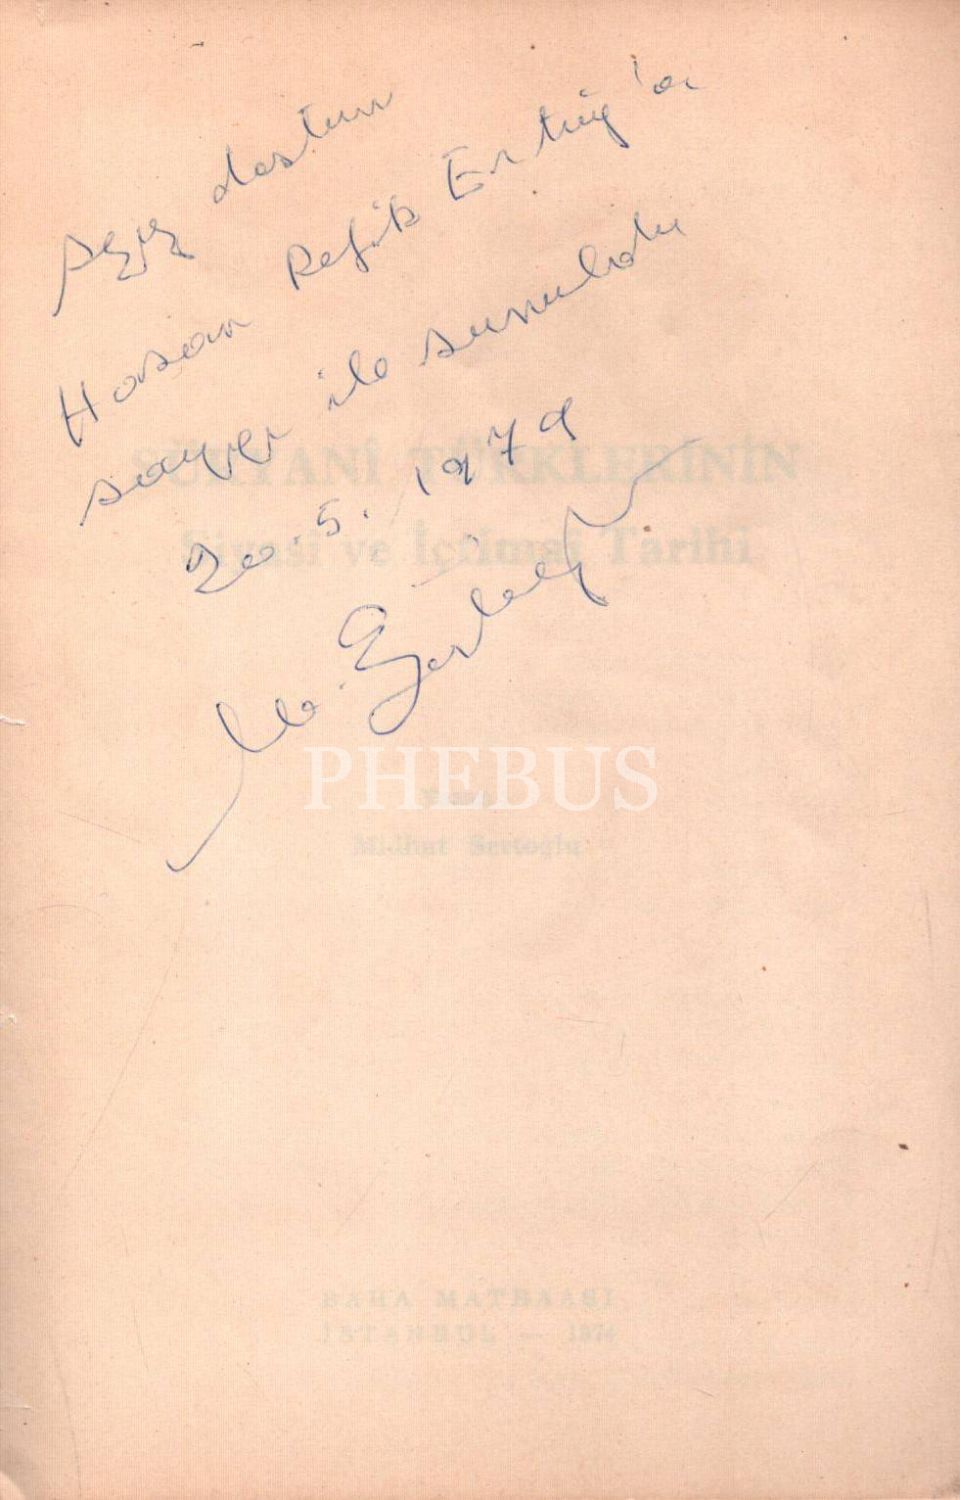 Aziz dostum
Hasan Refik Ertuğ'a
saygı ile sunuldu
20.5.1979
SÜRYANİ TÜRKLERİNİN
Siyasi ve İçtimaî Tarihi
PHEBUS
Midhat Sertoğlu
BAHA MATBAASI
İSTANBUL — 1974